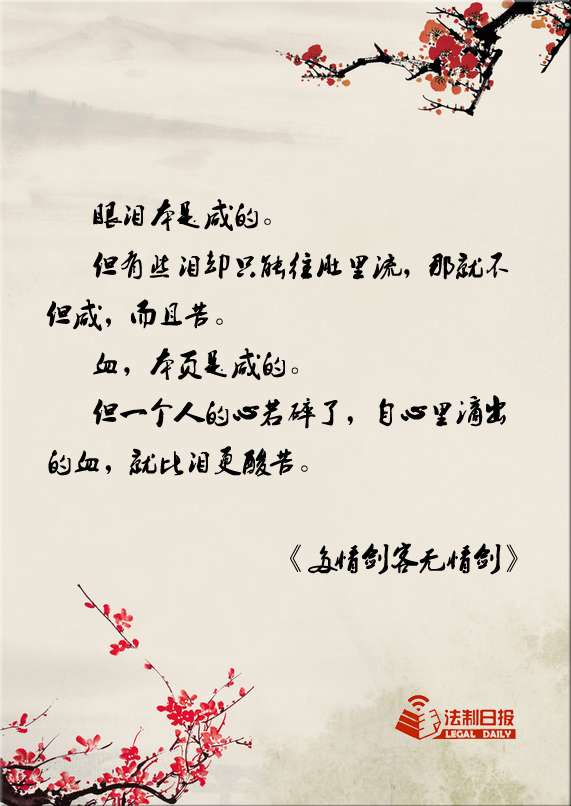 眼泪本是咸的。
但有些泪却只能往肚里流，那就不
但咸，而且苦。
血，本页是咸的。
但一个人的心若碎了，自心里滴出
的血，就比泪更酸苦。
《多情剑客无情剑》
法制日报
LEGAL DAILY